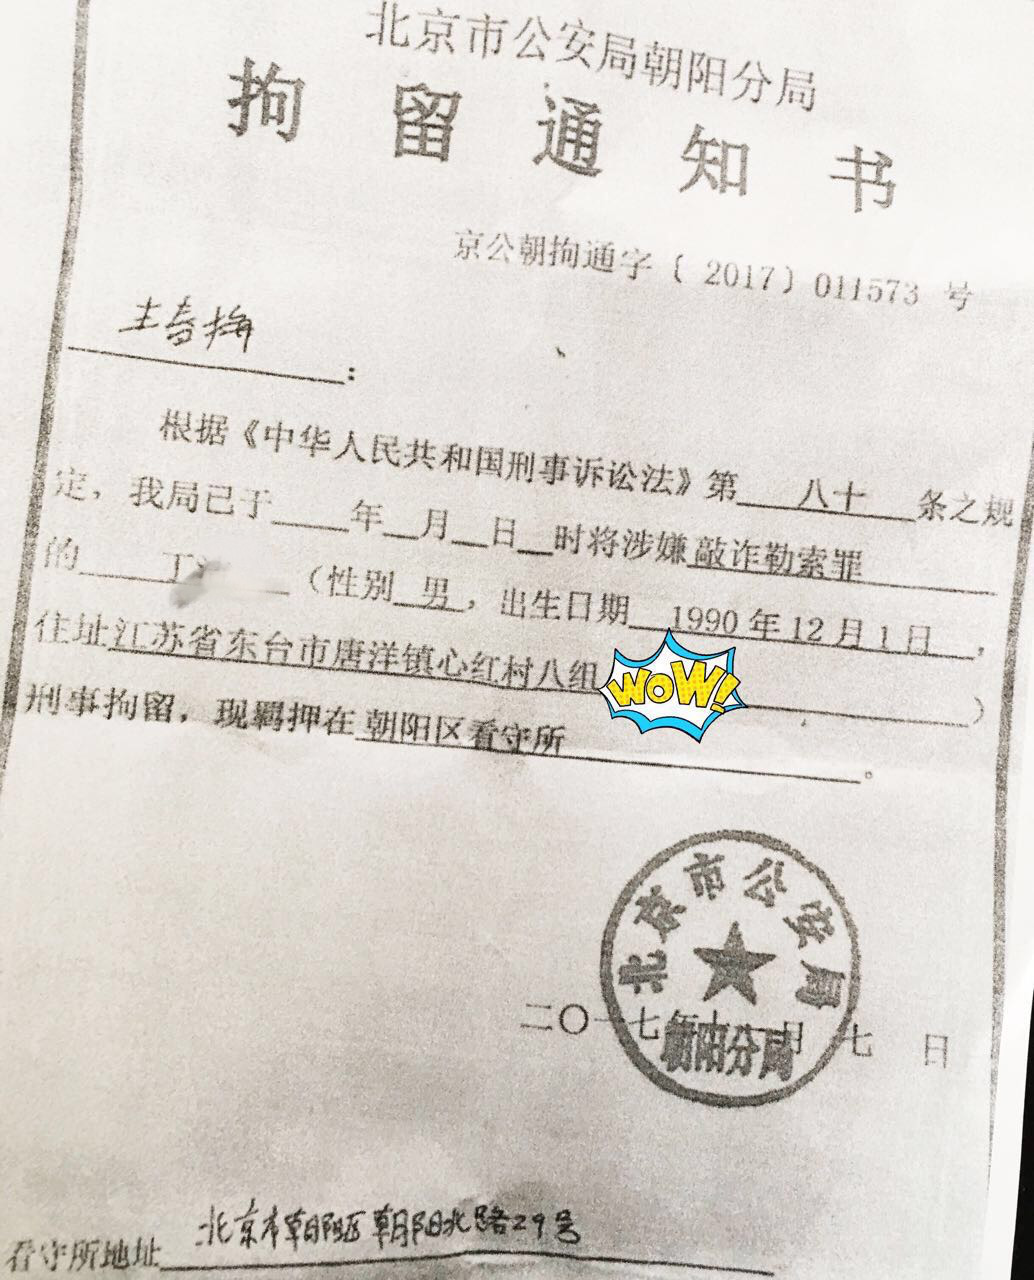 北京市公安局朝阳分局
拘留通知书
京公朝拘通字〔2017〕011573 号
王春梅：
根据《中华人民共和国刑事诉讼法》第 八十 条之规
定，我局已于 年 月 日 时将涉嫌敲诈勒索罪
的 （性别 男，出生日期 1990年12月1日，
住址江苏省东台市唐洋镇心红村八组 ）
WOW!
刑事拘留，现羁押在朝阳区看守所。
北京市公安局
二〇一七年十一月七日
朝阳分局
看守所地址 北京市朝阳区朝阳北路29号